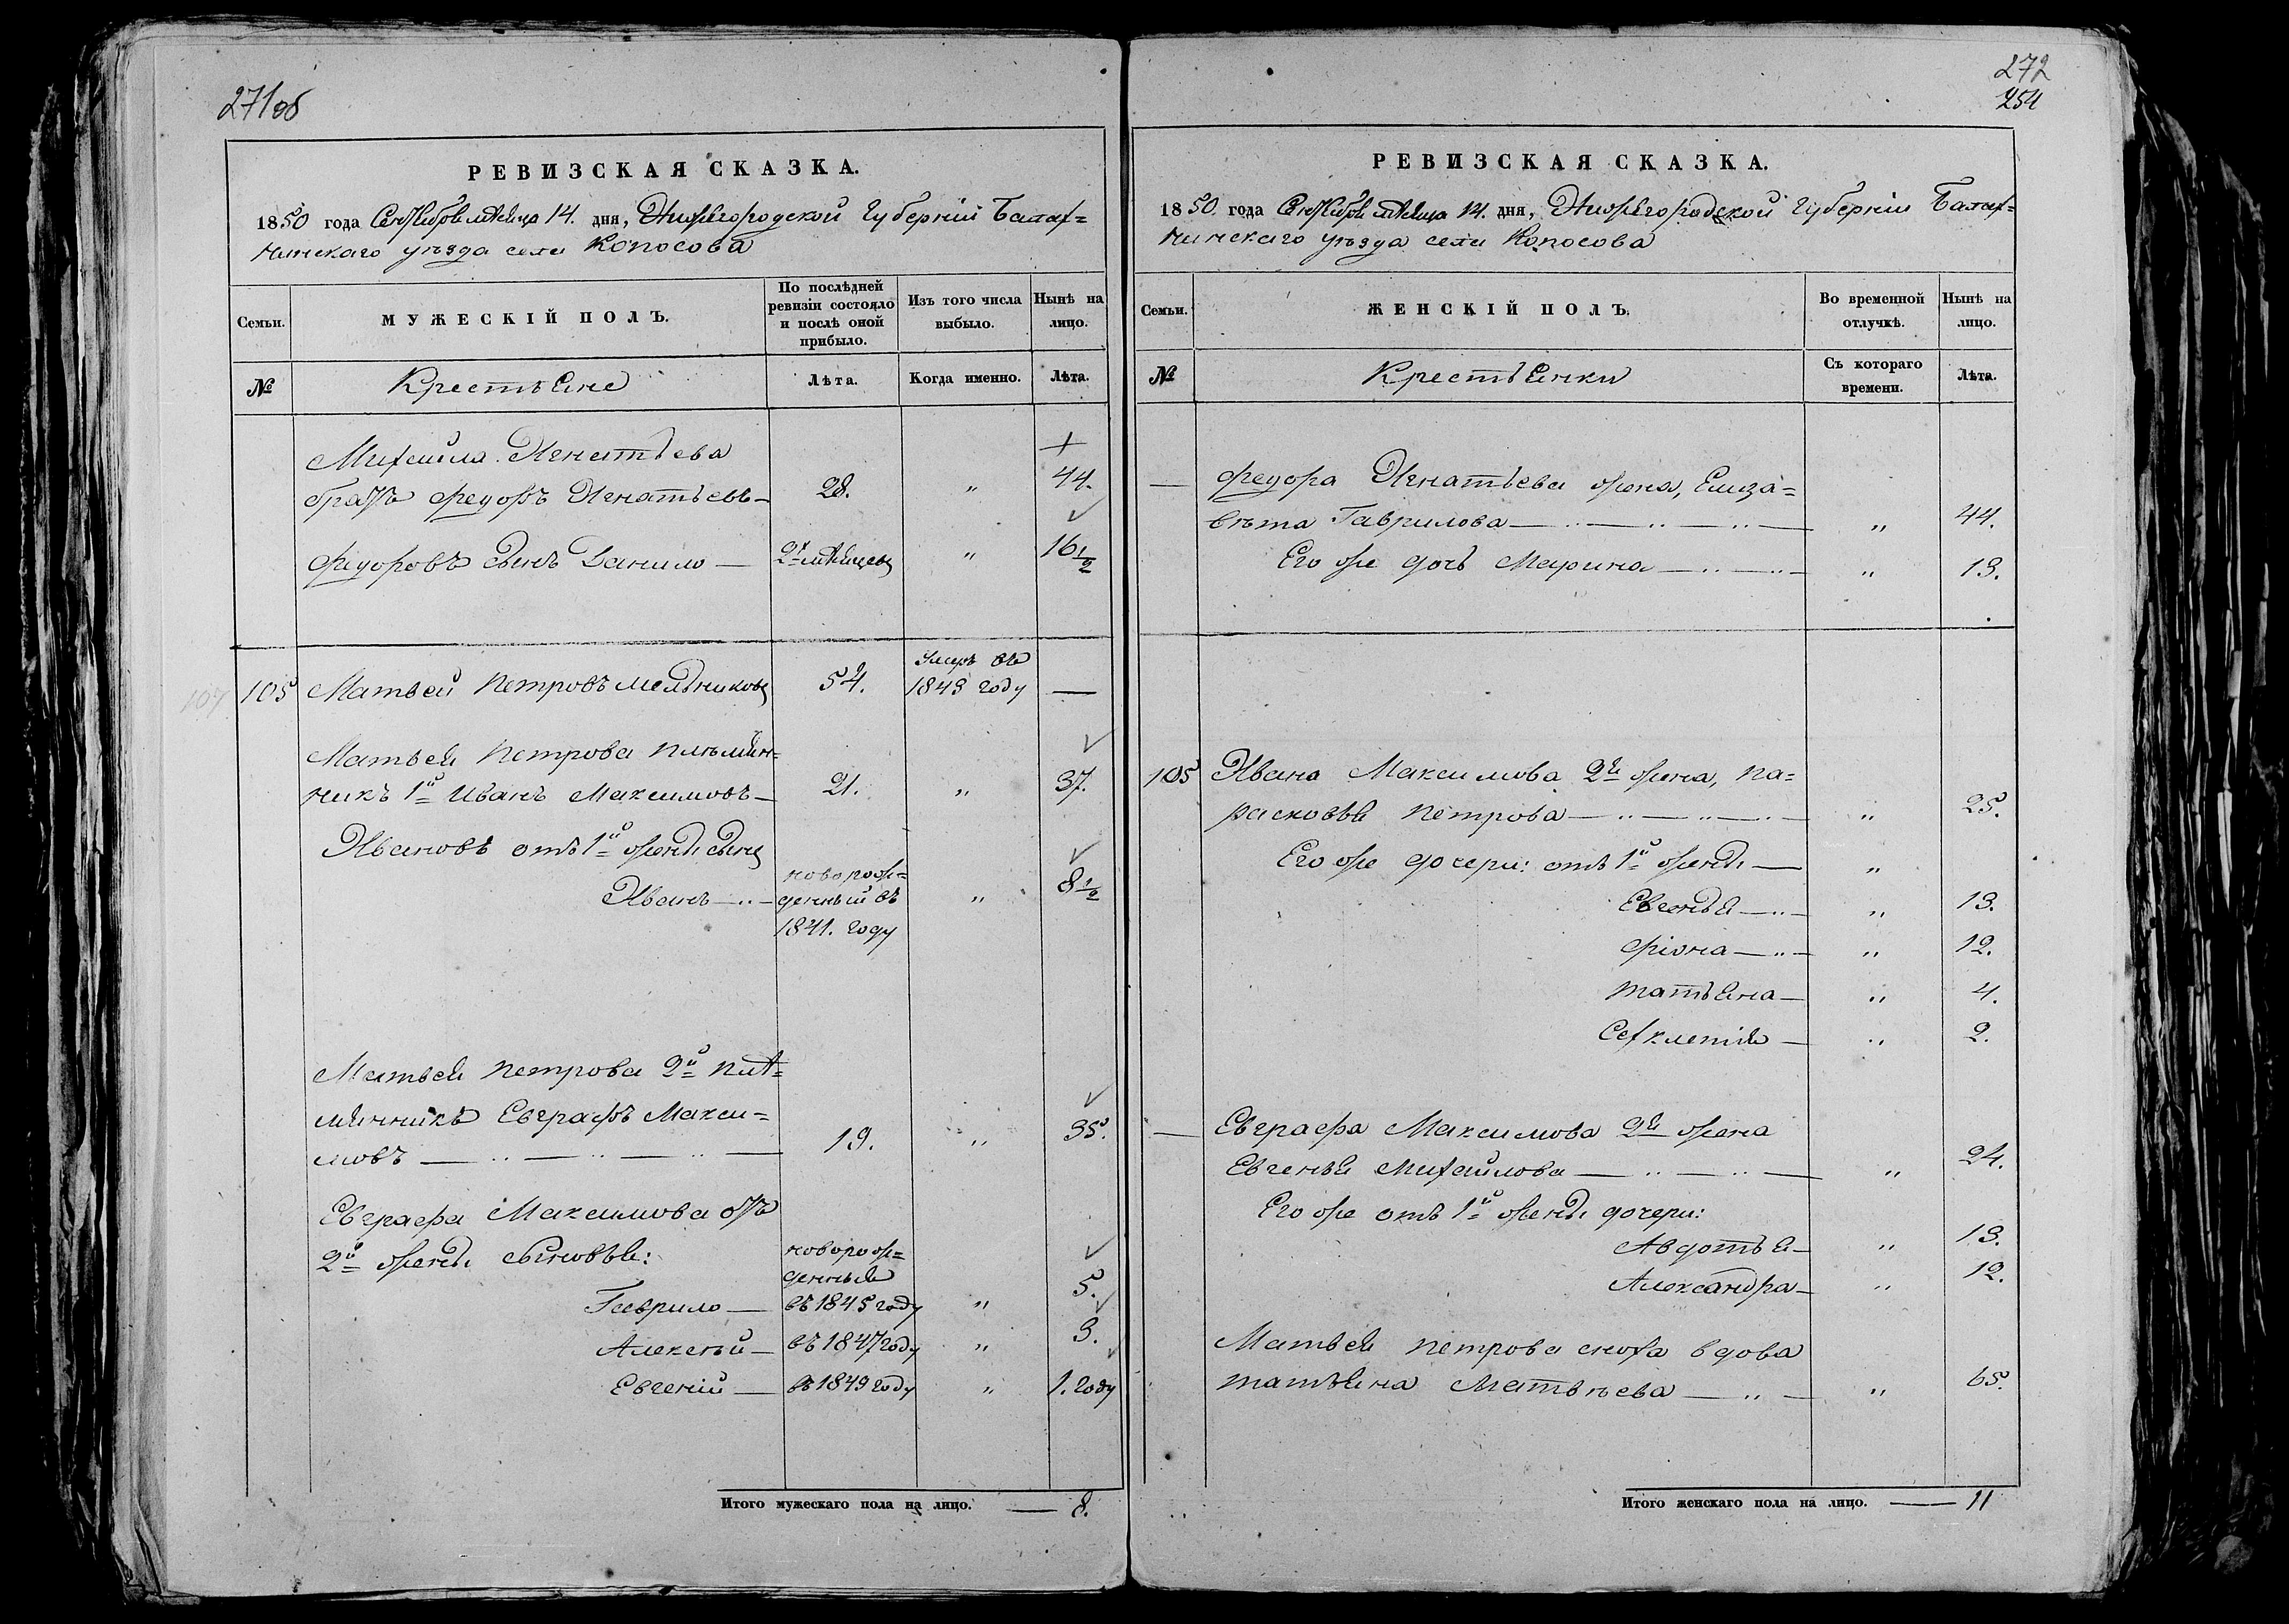 271об
РЕВИЗСКАЯ СКАЗКА.
1850 года Сентября месяца 14. дня, Нижегородской Губернiи Балах=
нинскаго уѣзда села Копосова
Семьи.
МУЖЕСКІЙ ПОЛЪ.
По послѣдней ревизіи состояло и послѣ оной прибыло.
Изъ того числа выбыло.
Нынѣ на лицо.
№
Крестьяне
Лѣта.
Когда именно.
Лѣта.
Михаила Игнатьева
братъ Федоръ Игнатьевъ — 28. " 44.
Федоровъ сынъ Данило — 2х месяцевъ " 16 1/2
107 105 Матвей Петровъ Мельниковъ 54. умеръ въ 1843 году —
Матвея Петрова племян=
никъ 1й Иванъ Максимовъ — 21. " 37.
Ивановъ отъ 1й жены сынъ
Иванъ — новорож=
денный въ " 8 1/2
1841. году
Матвея Петрова 2й плѣ=
мянникъ Евграфъ Макси=
мовъ — 19. " 35.
Евграфа Максимова отъ
2й жены сыновья:
новорож=
денные
Гаврило — въ 1845 году " 5.
Алексѣй — въ 1847 году " 3.
Евгений — въ 1849 году " 1. году
Итого мужескаго пола на лицо. — 8.
272
254
РЕВИЗСКАЯ СКАЗКА.
1850. года Сентября месяца 14. дня, Нижегородской Губернiи Балах=
нинскаго уѣзда села Копосова
Семьи.
ЖЕНСКІЙ ПОЛЪ.
Во временной отлучкѣ.
Нынѣ на лицо.
№
Крестьянки
Съ котораго времени.
Лѣта.
— Федора Игнатьева жена, Елиза=
вѣта Гаврилова — " 44.
Его же дочь Марина — " 13.
105 Ивана Максимова 2я жена, Па=
расковья Петрова — " 25.
Его же дочери: отъ 1й жены — "
Евгенья — " 13.
Фiона — " 12.
Татьяна — " 4.
Секлетiя — " 2.
— Евграфа Максимова 2я жена
Евгенья Михайлова — " 24.
Его же отъ 1й жены дочери:
Авдотья — " 13.
Александра — " 12.
Матвея Петрова сноха вдова
Татьяна Матвѣева — " 65.
Итого женскаго пола на лицо. — 11